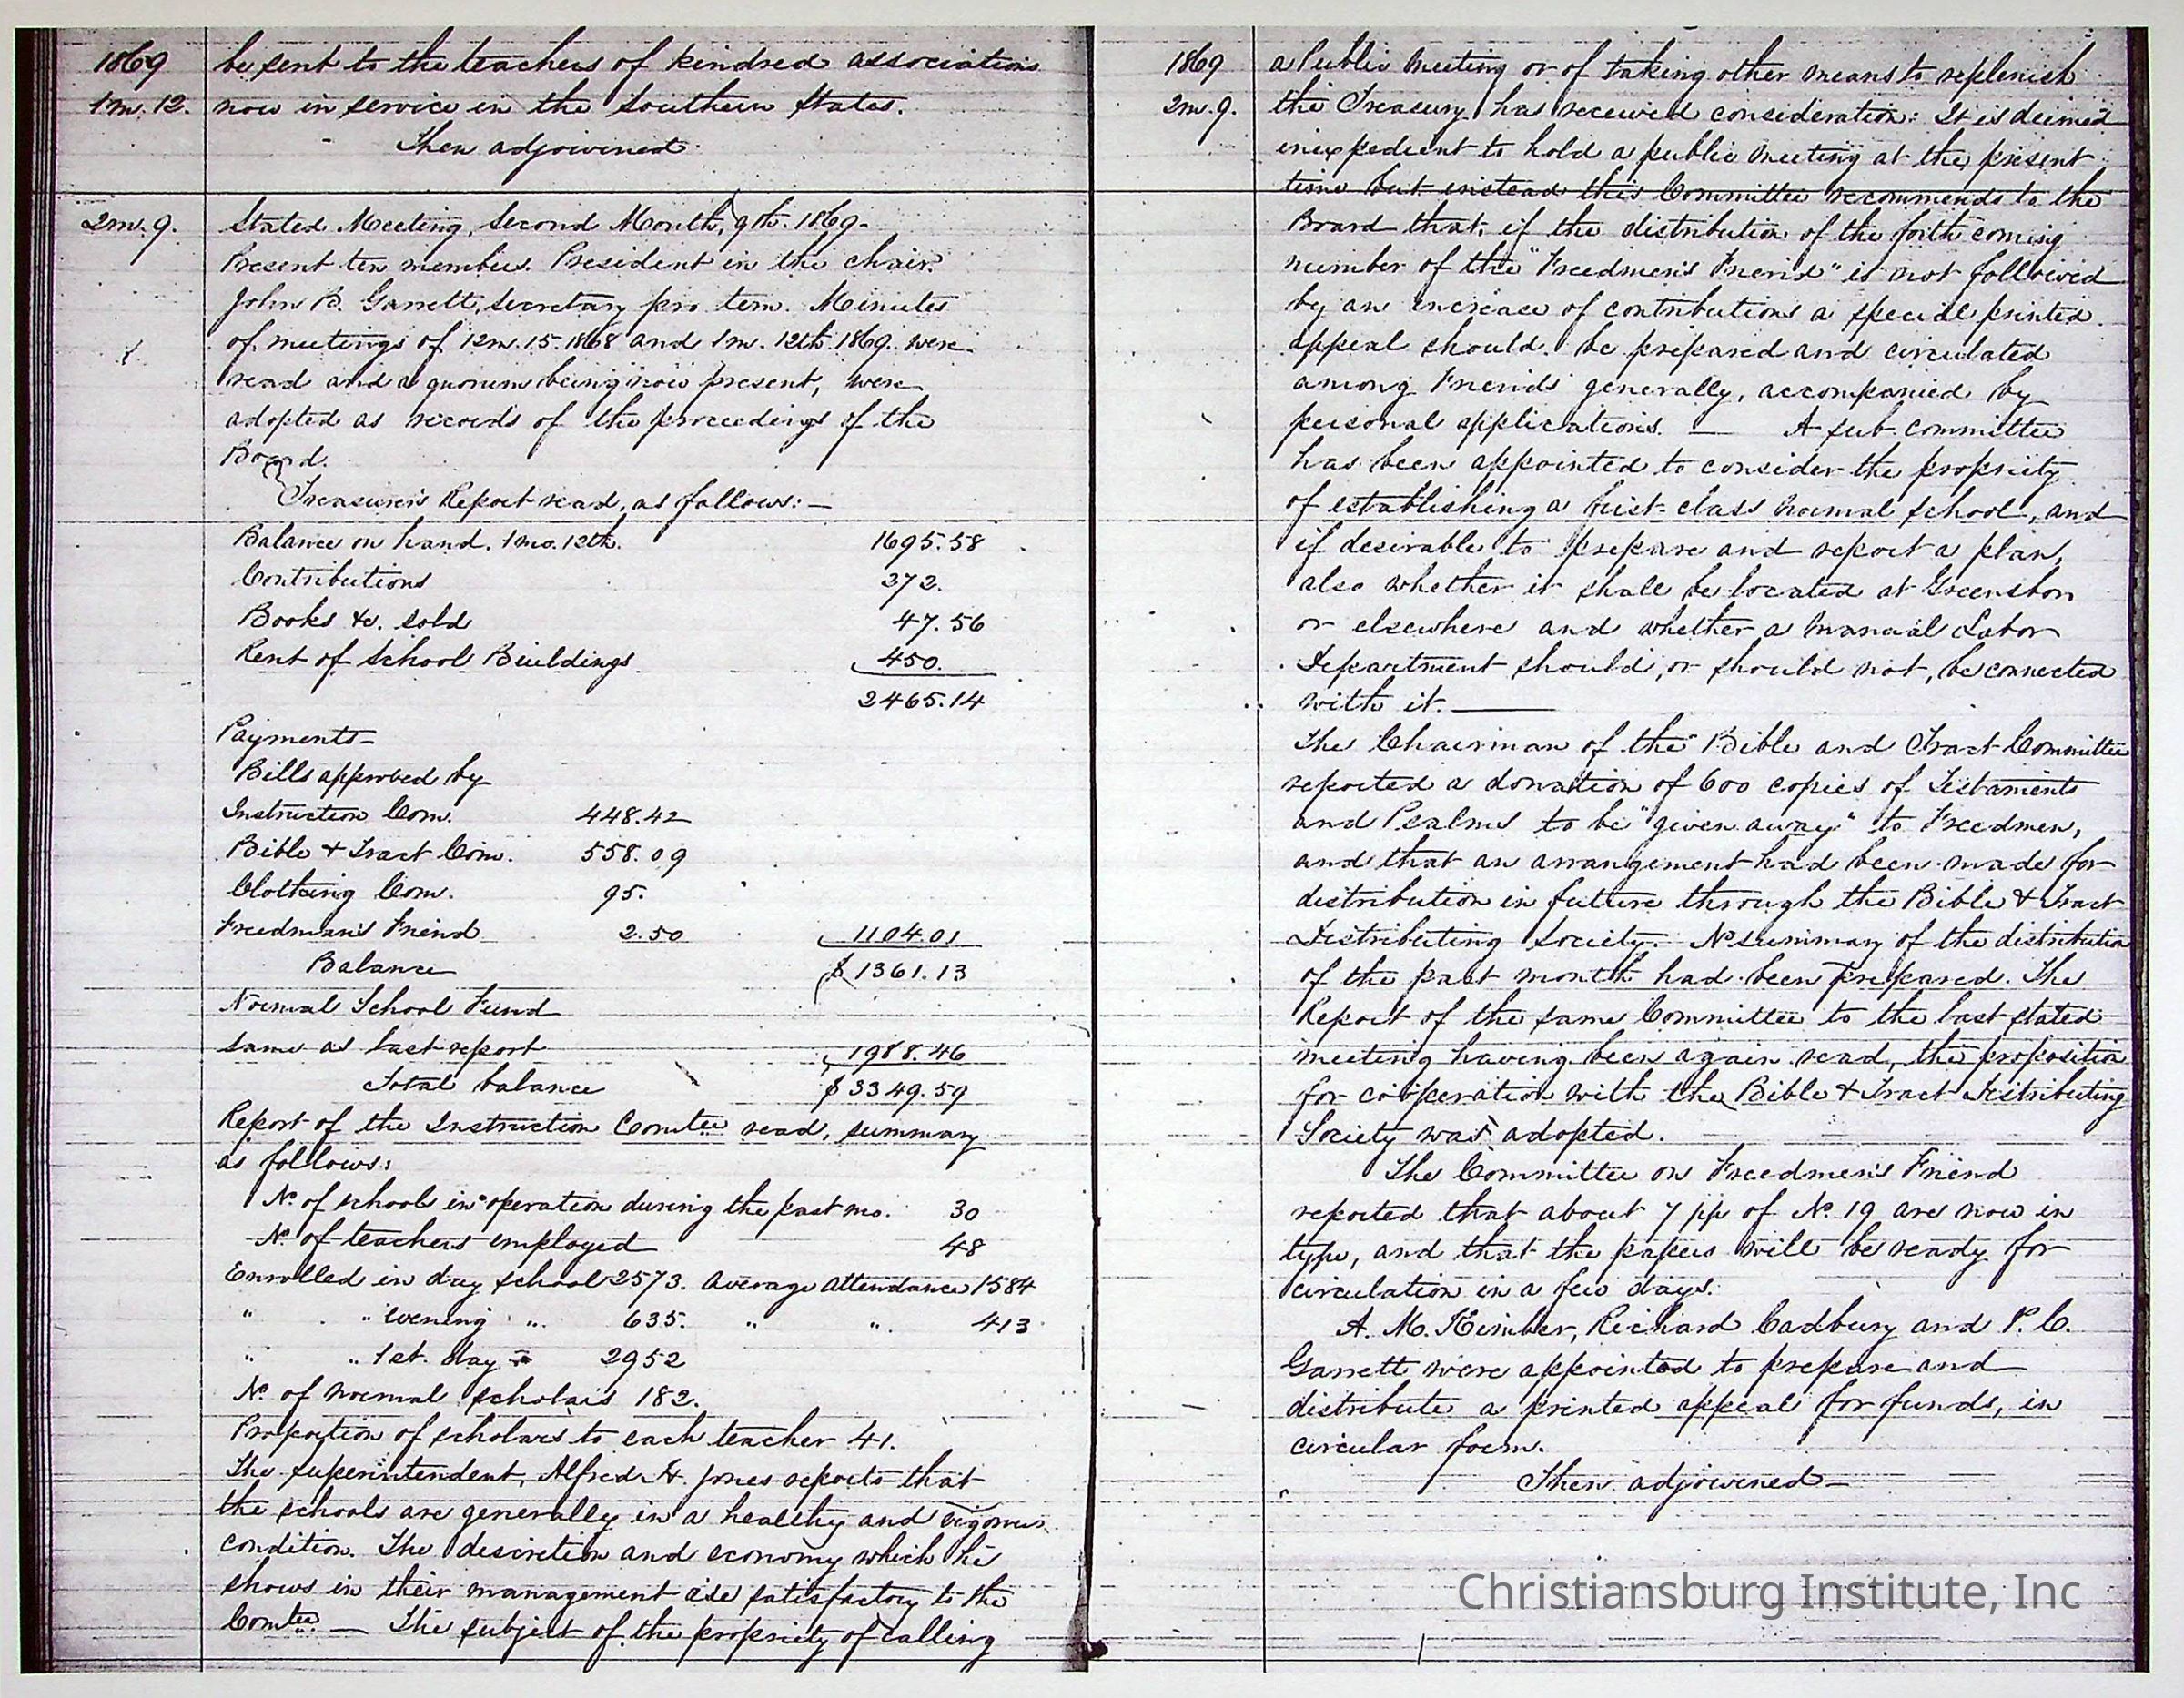 1869
1m. 12.
be sent to the teachers of kindred associations
now in service in the Southern States.
Then adjourned
2m. 9.
Stated Meeting, Second Month, 9th. 1869.
Present ten members. President in the chair.
John B. Garrett, Secretary pro tem. Minutes
of meetings of 12m. 15. 1868 and 1m. 12th. 1869. were
read and a quorum being now present, were
adopted as records of the proceedings of the
Board.
Treasurer's Report read, as follows: —
Balance on hand. 1mo. 12th. 1695.58
Contributions 272.
Books &c. sold 47.56
Rent of School Buildings 450.
2465.14
Payments —
Bills approved by
Instruction Com. 448.42
Bible & Tract Com. 558.09
Clothing Com. 95.
Freedman's Friend 2.50 1104.01
Balance $ 1361.13
Normal School Fund
same as last report 1988.46
Total balance $ 3349.59
Report of the Instruction Comtee read, summary
as follows:
No. of schools in operation during the past mo. 30
No. of teachers employed 48
Enrolled in day school 2573. Average Attendance 1584
" " evening " 635. " " 413
" " 1st. day " 2952
No. of normal scholars 182.
Proportion of scholars to each teacher 41.
The superintendent, Alfred H. Jones reports that
the schools are generally in a healthy and vigorous
condition. The discretion and economy which he
shows in their management are satisfactory to the
Comtee. — The subject of the propriety of calling
1869
2m. 9.
a Public Meeting or of taking other means to replenish
the Treasury has received consideration: It is deemed
inexpedient to hold a public meeting at the present
time but instead this Committee recommends to the
Board that, if the distribution of the forth coming
number of the "Freedmen's Friend" is not followed
by an increase of contributions a special printed
appeal should be prepared and circulated
among Friends generally, accompanied by
personal applications. — A sub-committee
has been appointed to consider the propriety
of establishing a first-class Normal School, and
if desirable to prepare and report a plan,
also whether it shall be located at Greensboro
or elsewhere and whether a Manual Labor
Department should, or should not, be connected
with it. —
The Chairman of the Bible and Tract Committee
reported a donation of 600 copies of Testaments
and Psalms to be "given away" to Freedmen,
and that an arrangement had been made for
distribution in future through the Bible & Tract
Distributing Society. No summary of the distribution
of the past month had been prepared. The
Report of the same Committee to the last stated
meeting having been again read, the proposition
for coöperation with the Bible & Tract Distributing
Society was adopted.
The Committee on Freedmen's Friend
reported that about 7 pp of No. 19 are now in
type, and that the papers will be ready for
circulation in a few days.
A. M. Kimber, Richard Cadbury and P. C.
Garrett were appointed to prepare and
distribute a printed appeal for funds, in
circular form.
Then adjourned —
Christiansburg Institute, Inc